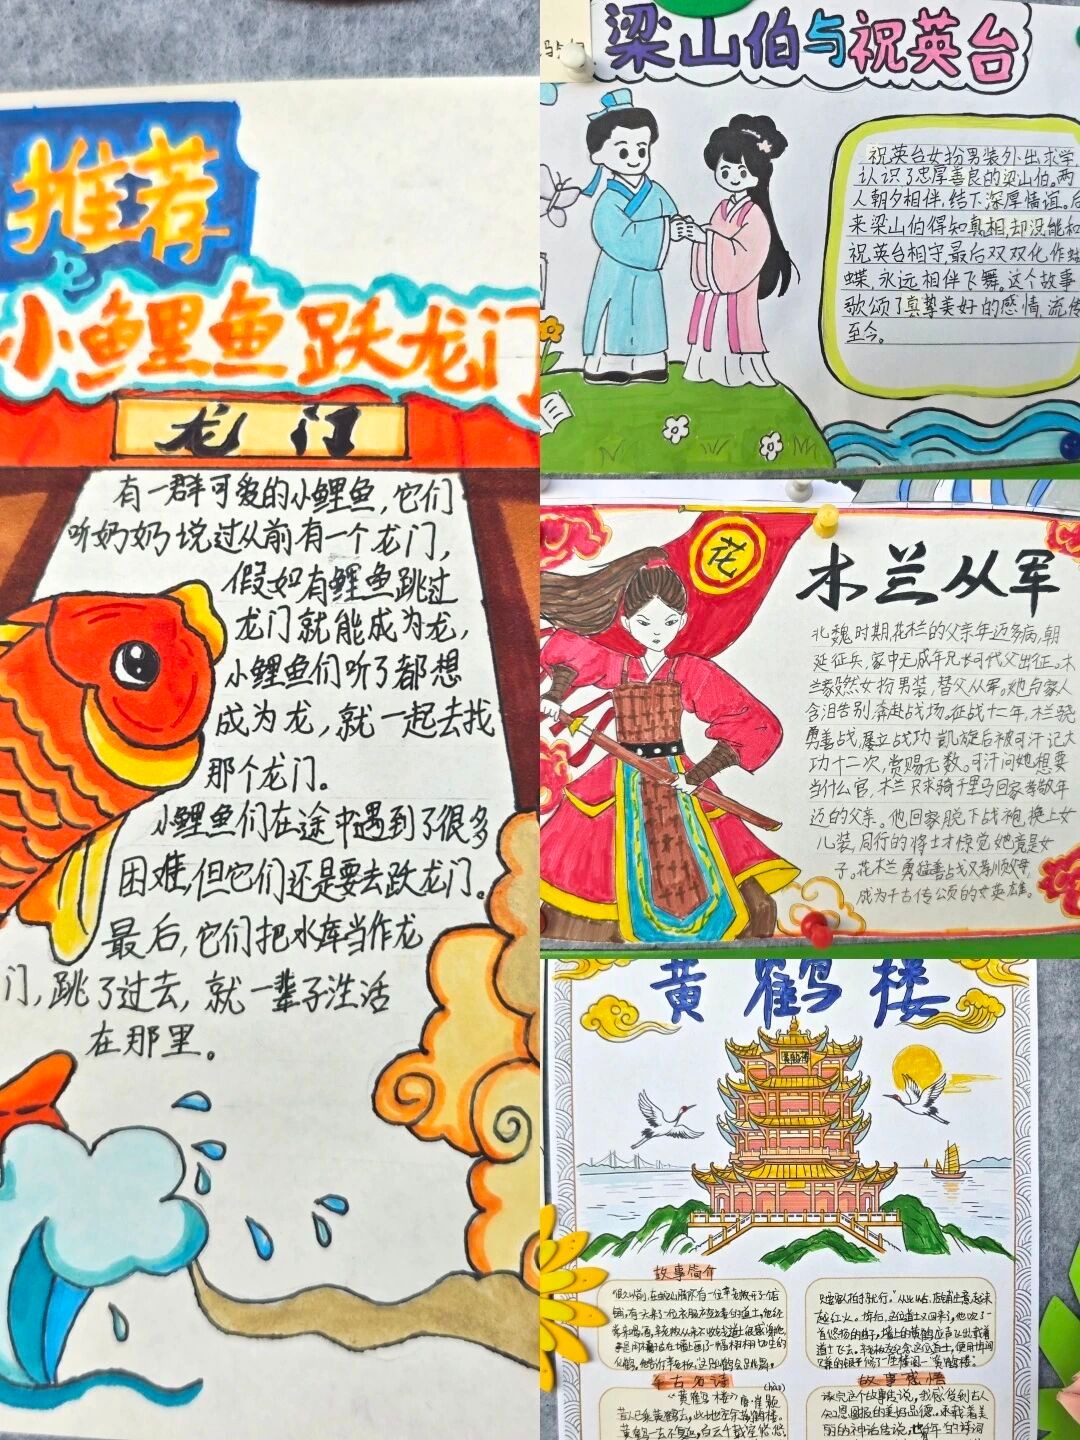 推荐
小鲤鱼跃龙门
龙门
有一群可爱的小鲤鱼，它们
听奶奶说过从前有一个龙门，
假如有鲤鱼跳过
龙门就能成为龙，
小鲤鱼们听了都想
成为龙，就一起去找
那个龙门。
小鲤鱼们在途中遇到了很多
困难，但它们还是要去跃龙门。
最后，它们把水库当作龙
门，跳了过去，就一辈子生活
在那里。
梁山伯与祝英台
祝英台女扮男装外出求学
认识了忠厚善良的梁山伯。两
人朝夕相伴，结下深厚情谊。后
来梁山伯得知真相，却没能和
祝英台相守，最后双双化作蝴
蝶，永远相伴飞舞。这个故事
歌颂了真挚美好的感情，流传
至今。
花
木兰从军
北魏时期花栏的父亲年迈多病，朝
延征兵，家中无成年兄长可代父出征。木
兰毅然女扮男装，替父从军。她与家人
含泪告别奔赴战场。征战十二年，木兰骁
勇善战，屡立战功，凯旋后被可汗记大
功十二次，赏赐无数。可汗问她想要
当什么官，木兰只求骑千里马回家孝敬年
迈的父亲。他回家脱下战袍，换上女
儿装，同行的将士才惊觉她竟是女
子。花木兰勇猛善战又孝顺父母，
成为千古传颂的女英雄。
黄鹤楼
黄鹤楼
故事简介
千古名诗
《黄鹤楼》唐·崔颢
(hào)
昔人已乘黄鹤去，此地空余黄鹤楼。
黄鹤一去不复返，白云千载空悠悠。
故事感悟
读完这个故事传说，我感受到古人
知恩图报的美好品德。承载着美
丽的神话传说，也有